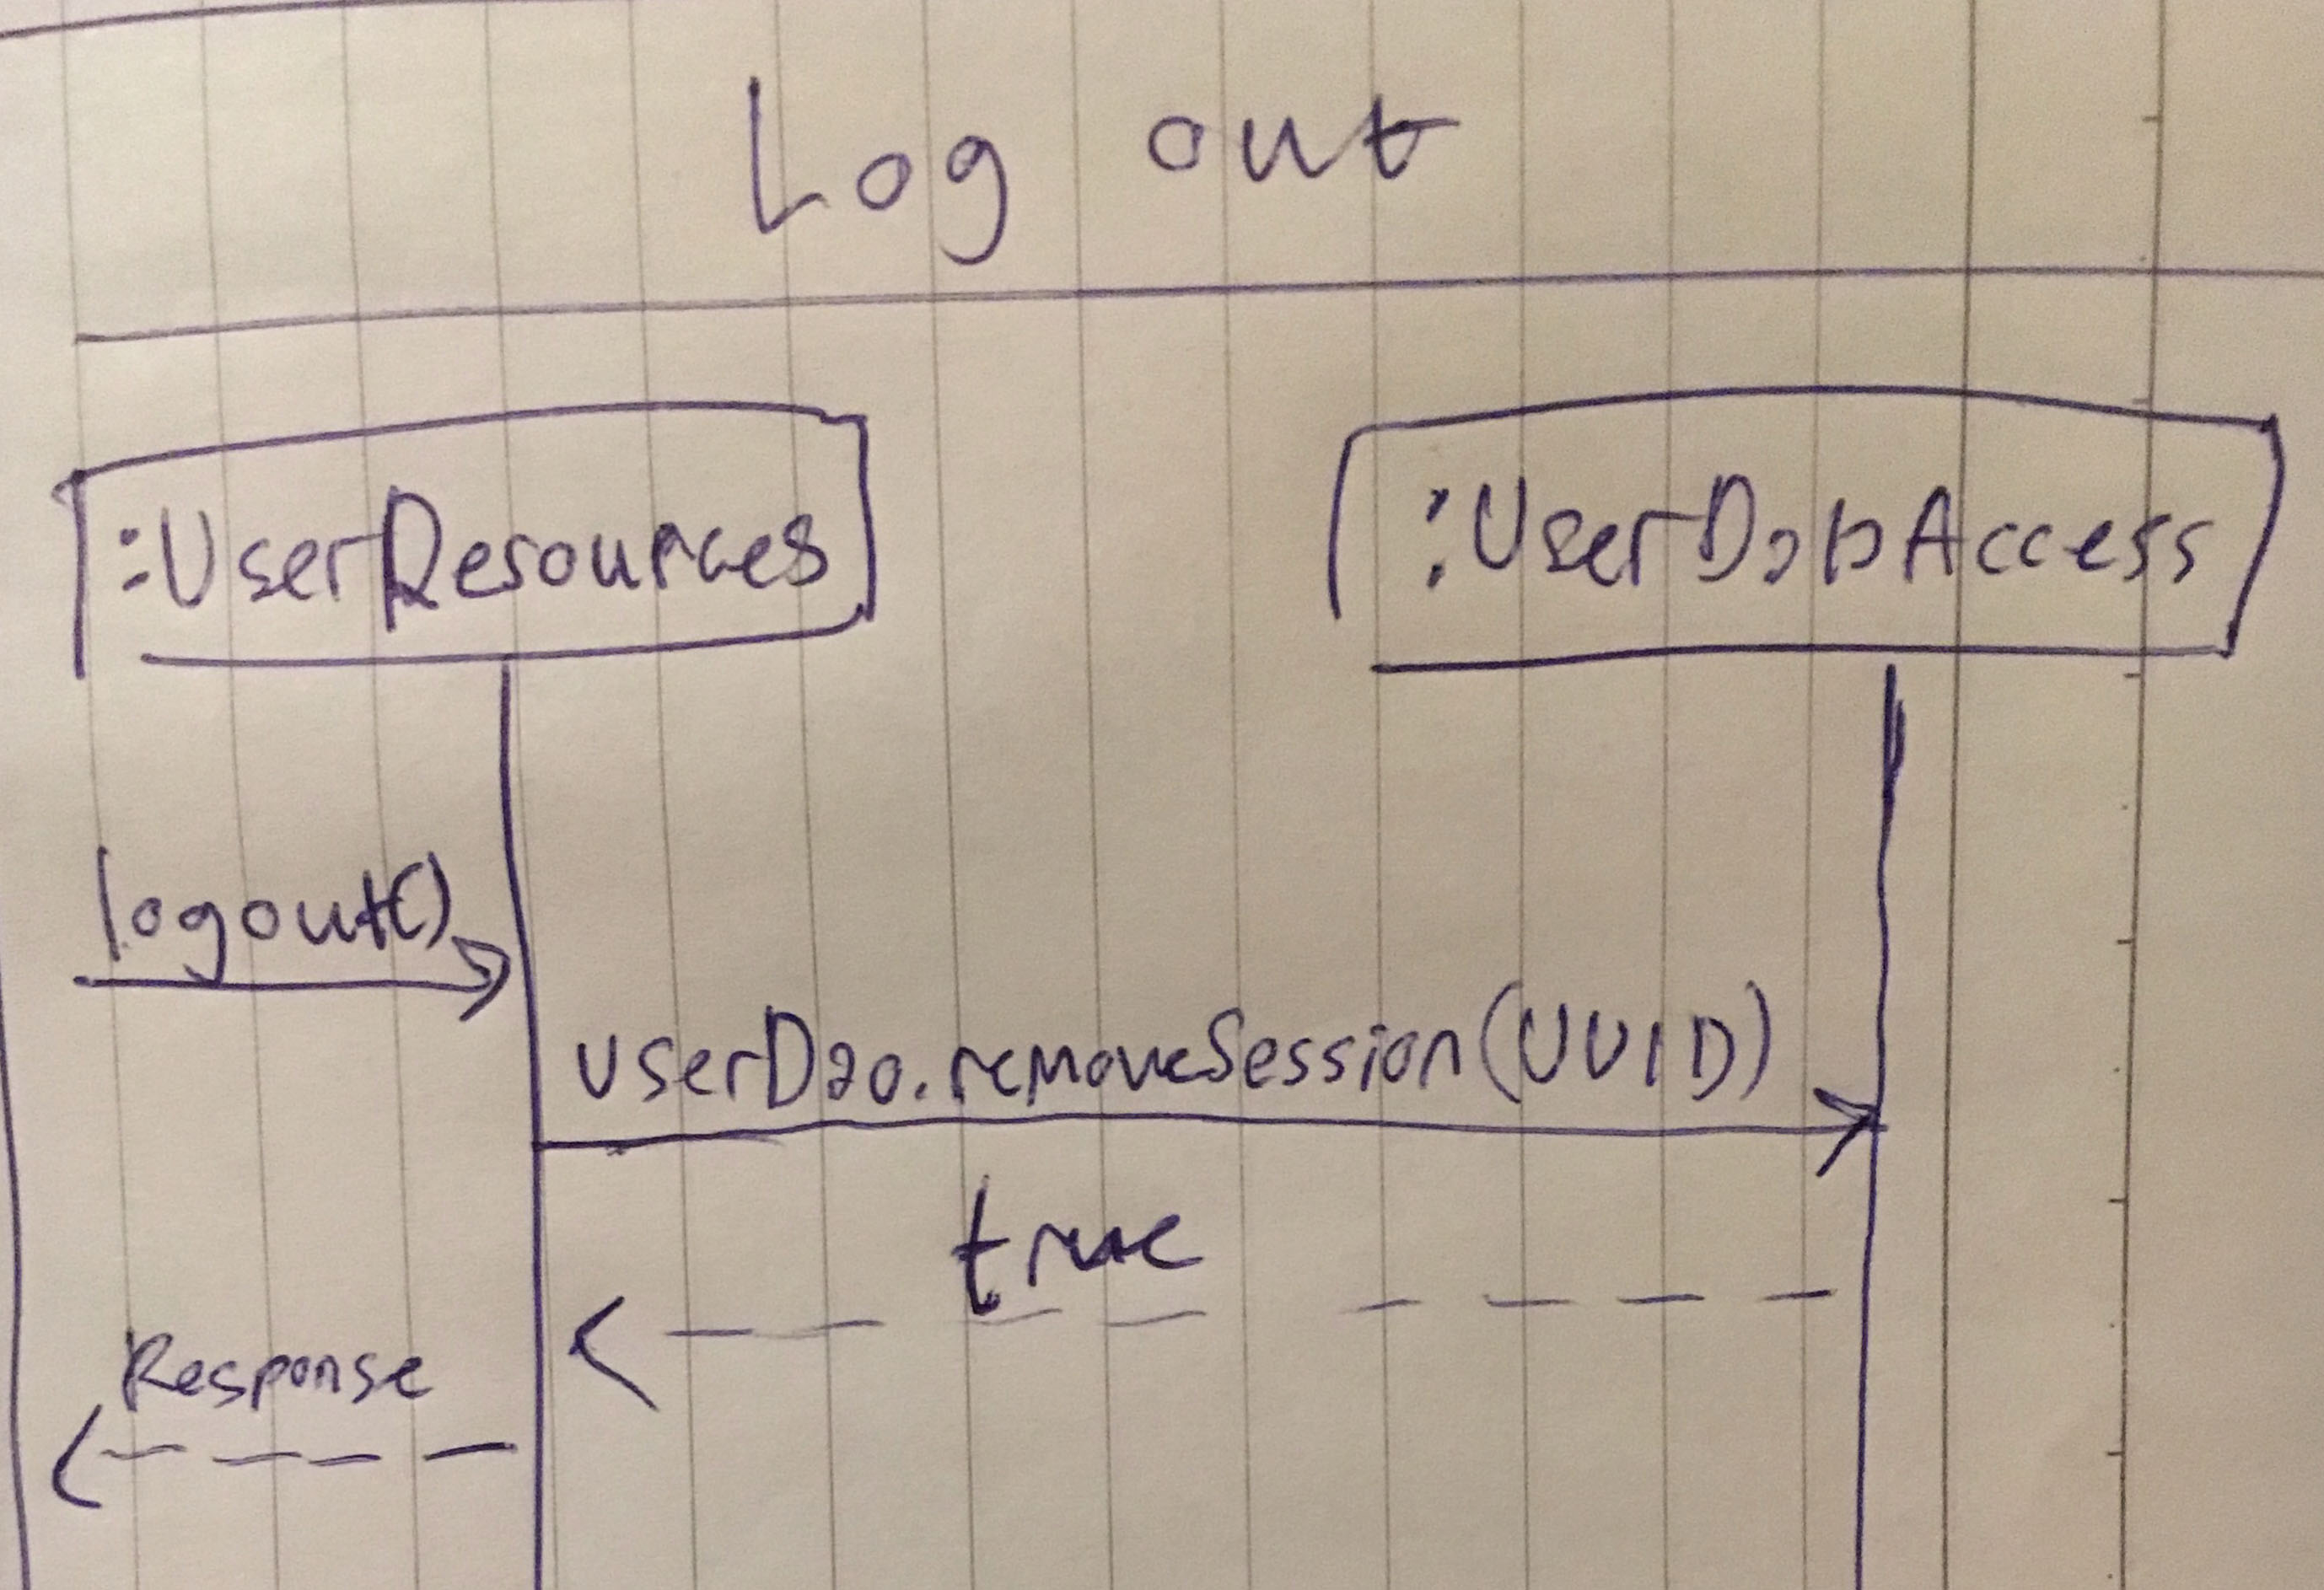 Log out
:UserResources
:UserDataAccess
logout()
userDao.removeSession(UUID)
true
Response